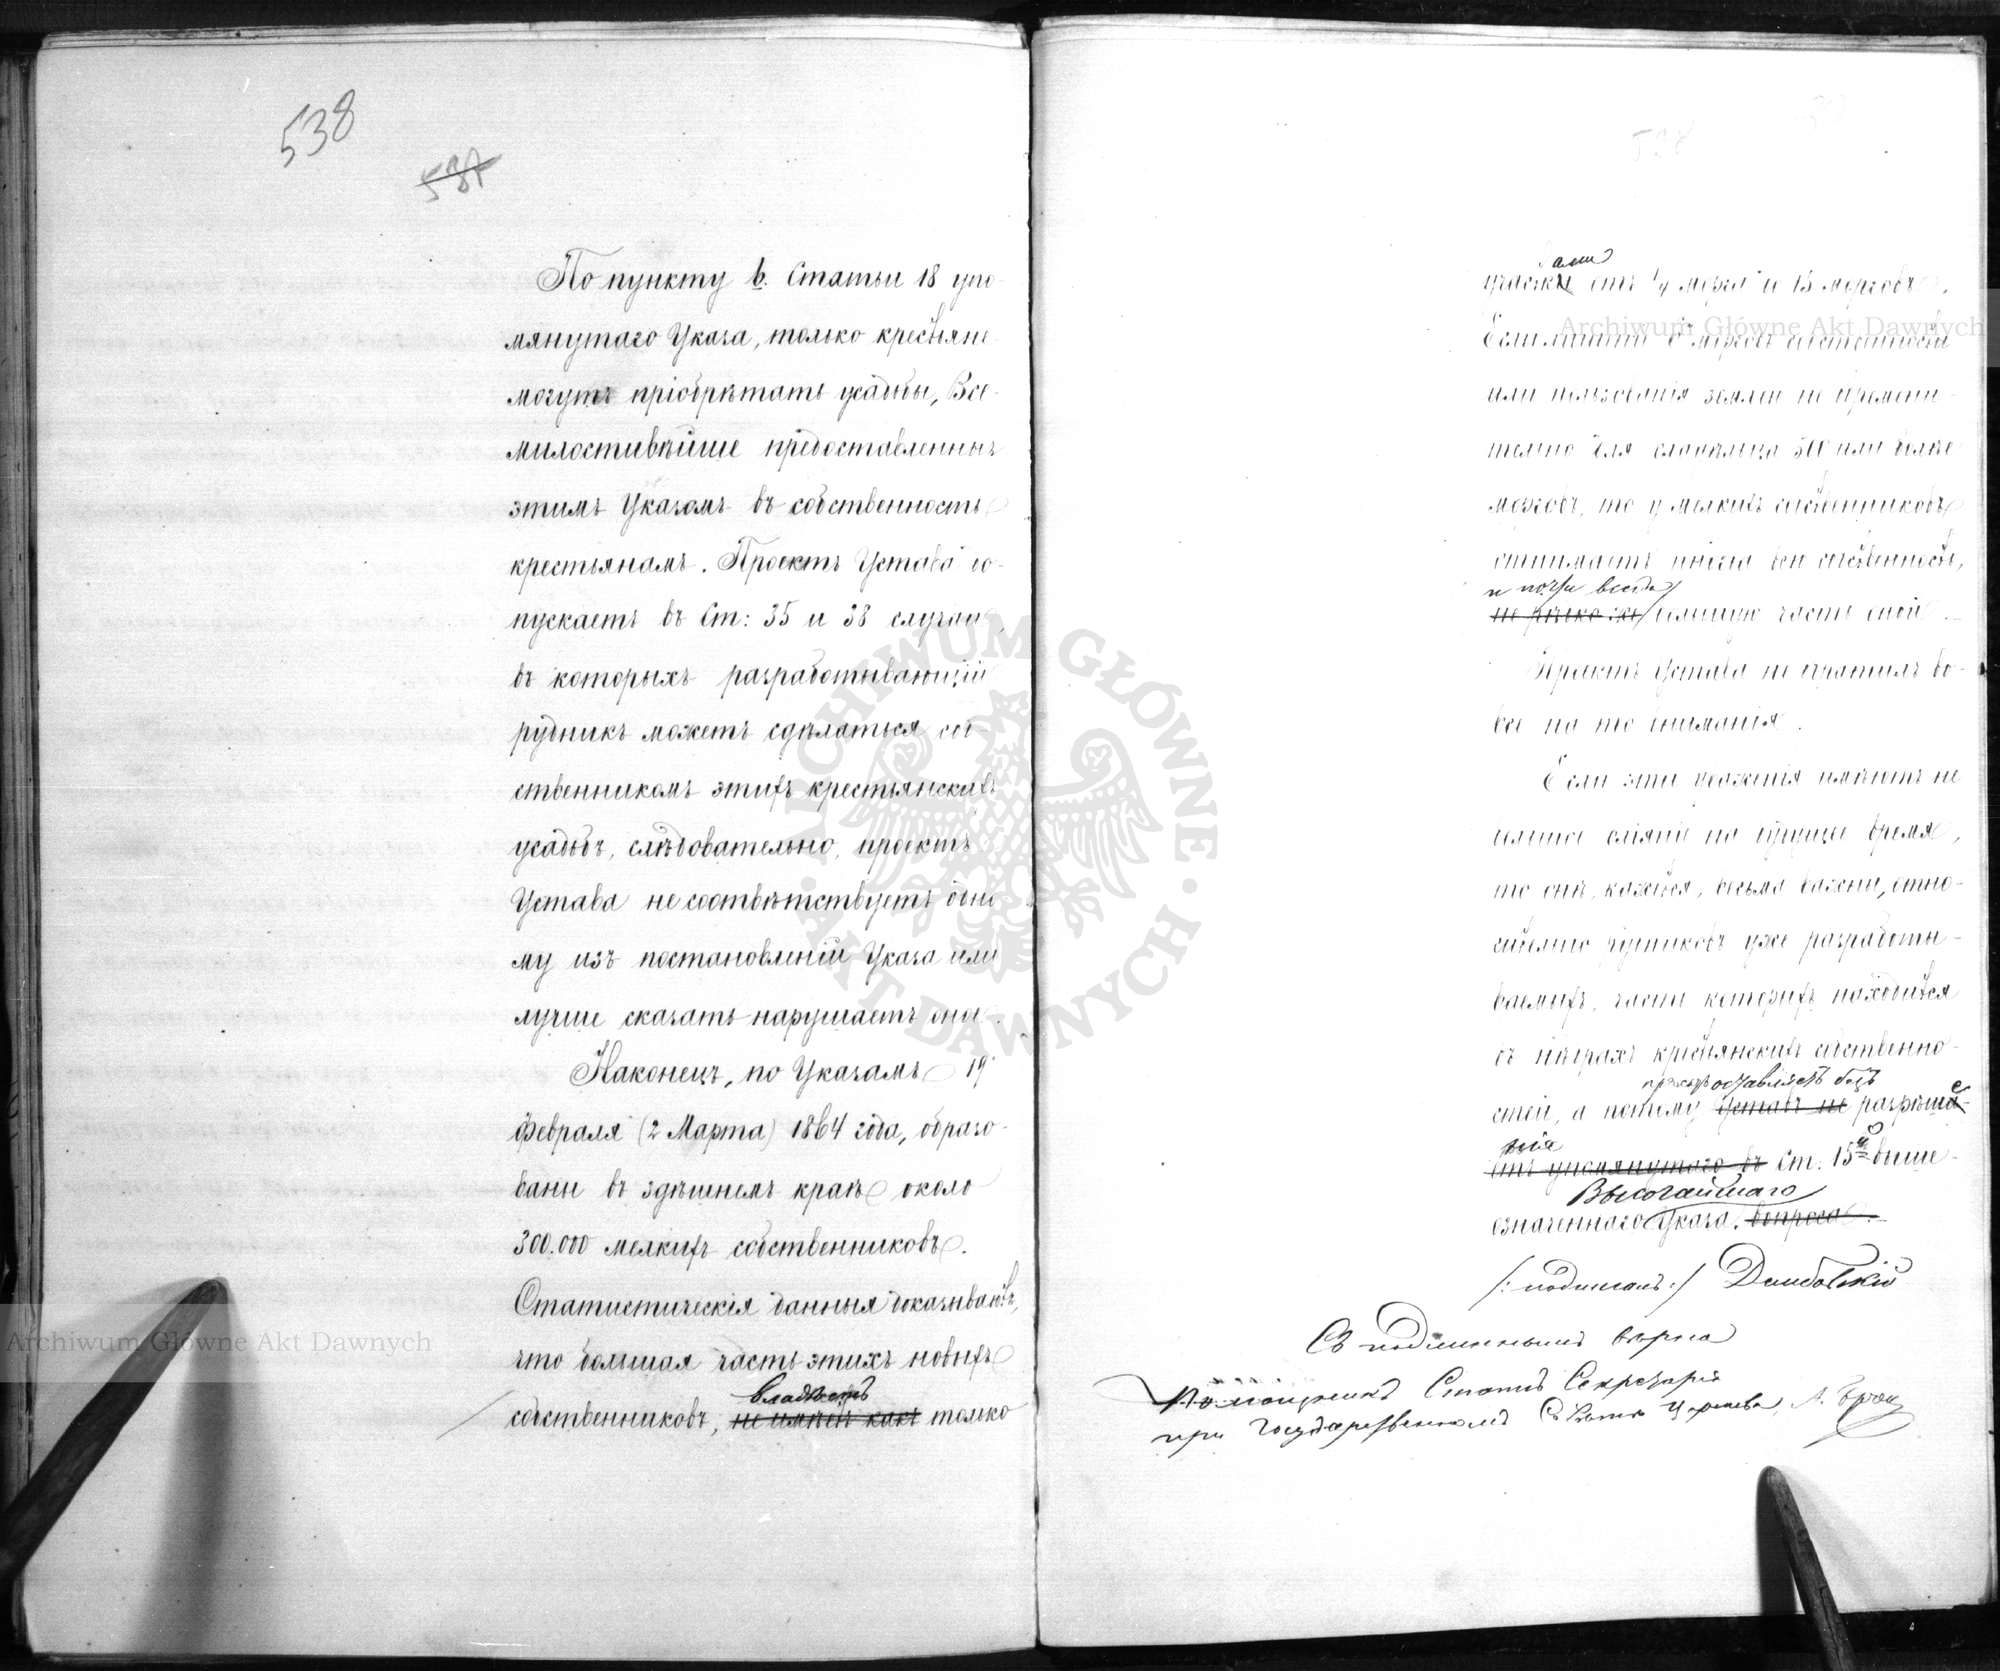 538
537
По пункту b. Статьи 18 упо-
мянутаго Указа, только крестьяне
могутъ пріобрѣтать усадьбы, Все-
милостивѣйше предоставленныя
этимъ Указомъ въ собственность
крестьянамъ. Проектъ Устава до-
пускаетъ въ Ст: 35 и 38 случаи,
въ которыхъ разработывающій
рудникъ можетъ сдѣлаться соб-
ственникомъ этихъ крестьянскихъ
усадьбъ, слѣдовательно, проектъ
Устава не соотвѣтствуетъ одно-
му изъ постановленій Указа или
лучше сказать нарушаетъ оное.
Наконецъ, по Указамъ 19
Февраля (2 Марта) 1864 года, образо-
ваны въ здѣшнемъ краѣ около
300.000 мелкихъ собственниковъ.
Статистическія данныя доказываютъ,
что большая часть этихъ новыхъ
владѣетъ
собственниковъ, не имѣетъ какъ только
ами
участки отъ 1/4 морга до 15 морговъ.
Если 6 морговъ
или пользованія землею не
для владѣльца 500 или болѣе
морговъ, то у мелкихъ собственниковъ
отнимаетъ иногда всю собственность,
и почти всегда
не рѣдко же большую часть оной.
Проектъ Устава не обратилъ во-
все на то вниманія.
Если эти уваженія имѣютъ не
большое вліяніе на будущее время,
то онѣ, кажется, весьма важны, отно-
сительно рудниковъ уже разработы-
ваемыхъ, части которыхъ находятся
въ нѣдрахъ крестьянскихъ собственно-
оставляетъ безъ
стей, а потому, Уставъ не разрѣша-
нія
етъ упомянутаго въ Ст: 15й выше-
Высочайшаго
означеннаго Указа, вопроса.
/: подписалъ:/ Дембовскій
Съ подлиннымъ вѣрно
Помощникъ Статсъ Секретаря
при Государственномъ Совѣтѣ Царства
Archiwum Główne Akt Dawnych
Archiwum Główne Akt Dawnych
ARCHIWUM GŁÓWNE · AKT DAWNYCH ·